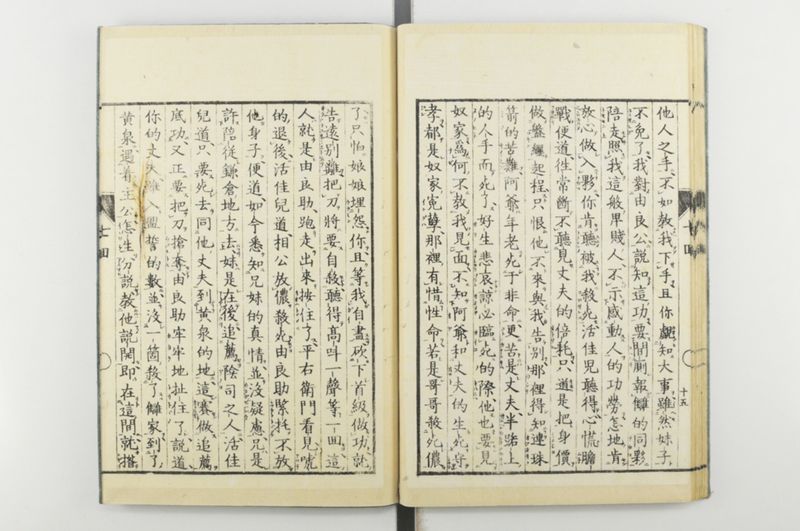 他人之手、不如教我下手、且你覷知大事、雖然妹子
不免了、我對由良公說知、這功、要問廟報讎的同夥
陪走、照我這般卑賤人、不示感動人的功勞、怎地肯
放心做入夥、你肯聽被我殺死、活佳児聽得、心慌膽
戰、便道、往常斷不聽見丈夫的信耗、只 是把身價
做盤纏起程、只恨他不來與我告別、那裡得知連珠
箭的苦難、阿爺年老死于非命、更苦是丈夫半路上
的人手而死了、好生悲哀、諒必臨死的際、他也要見
奴家、為何不教我見面、不知阿爺和丈夫的生死守
孝、都是奴家冤孽、那裡有惜性命、若是哥哥殺死儂、
了、只怕娘娘埋怨、你且等我自盡、砍下首級、做功、就
告遠別離、把刀將要自殺、聽得高叫一聲等一囬、這
人就是由良助、跑走出來、按住了平右衛門看見、唬
的退後、活佳兒道、相公放儂殺死、由良助緊托不放
他身子、便道、如今悉知兄妹的真情、並沒疑慮、兄是
許陪從鎌倉地方去、妹是在後、追薦陰司之人、活佳
兒道、只要死去、同他丈夫到黃泉的地、這賽做追薦
底功、又正要把刀搶奪、由良助牢牢地扯住了、說道
你的丈夫雖入盟誓的數、並沒一箇殺了讎家、到了
黃泉遇着主公、怎生分說、教他說開、即在這間就搭
十五
七 四